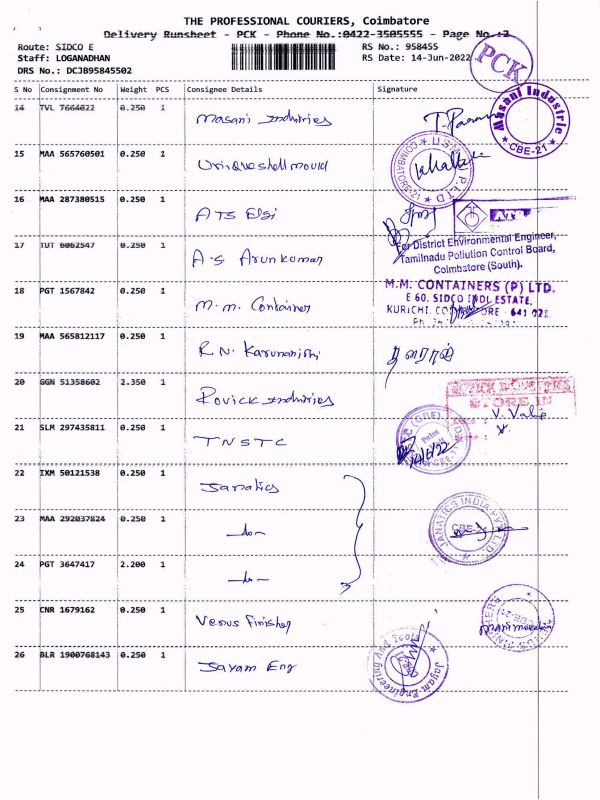 THE PROFESSIONAL COURIERS, Coimbatore
Delivery Runsheet - PCK - Phone No.:0422-3505555 - Page No.:2
Route: SIDCO E
RS No.: 958455
Staff: LOGANADHAN
RS Date: 14-Jun-2022
DRS No.: DCJB95845502
PCK
S No Consignment No Weight PCS Consignee Details Signature
14 TVL 7664022 0.250 1 Masani Industries
Masani Industrie
CBE-21
15 MAA 565760501 0.250 1 Uniqueshell mould
COIMBATORE-21
P.LTD
16 MAA 287380515 0.250 1 ATS Elgi
ATS
17 TUT 6062547 0.250 1 A.S Arunkumar
For District Environmental Engineer,
Tamilnadu Pollution Control Board,
Coimbatore (South).
18 PGT 1567842 0.250 1 M.M. Container
M.M. CONTAINERS (P) LTD.
E 60, SIDCO INDL ESTATE,
KURICHI, 641 021
19 MAA 565812117 0.250 1 R.N. Karunanithi
20 GGN 51358602 2.350 1 Rovick Industries
STORE IN
21 SLM 297435811 0.250 1 TNSTC
14/6/22
22 IXM 50121538 0.250 1 Janatics
23 MAA 292037824 0.250 1 -do-
JANATICS INDIA PVT LTD.
CBE-21
24 PGT 3647417 2.200 1 -do-
25 CNR 1679162 0.250 1 Venus Finisher
26 BLR 1900768143 0.250 1 Jayam Eng
Jayam Engineering And Tools